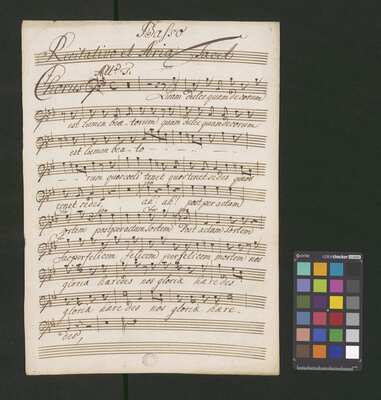 Basso
Recitativo et Aria Tacet
Chorus
Quam dulce quam decorum
est lumen bea - torum quam dulce quam decorum
est lumen bea - to -
rum quos coeli tenet quos tenet sedes quos
tenet sedes, ah! ah! post peractam
sortem post peractam sortem Post actam sortem
per felicem felicem per felicem mortem nos
gloria haredes nos gloria haredes
gloria haredes nos gloria hare -
des,